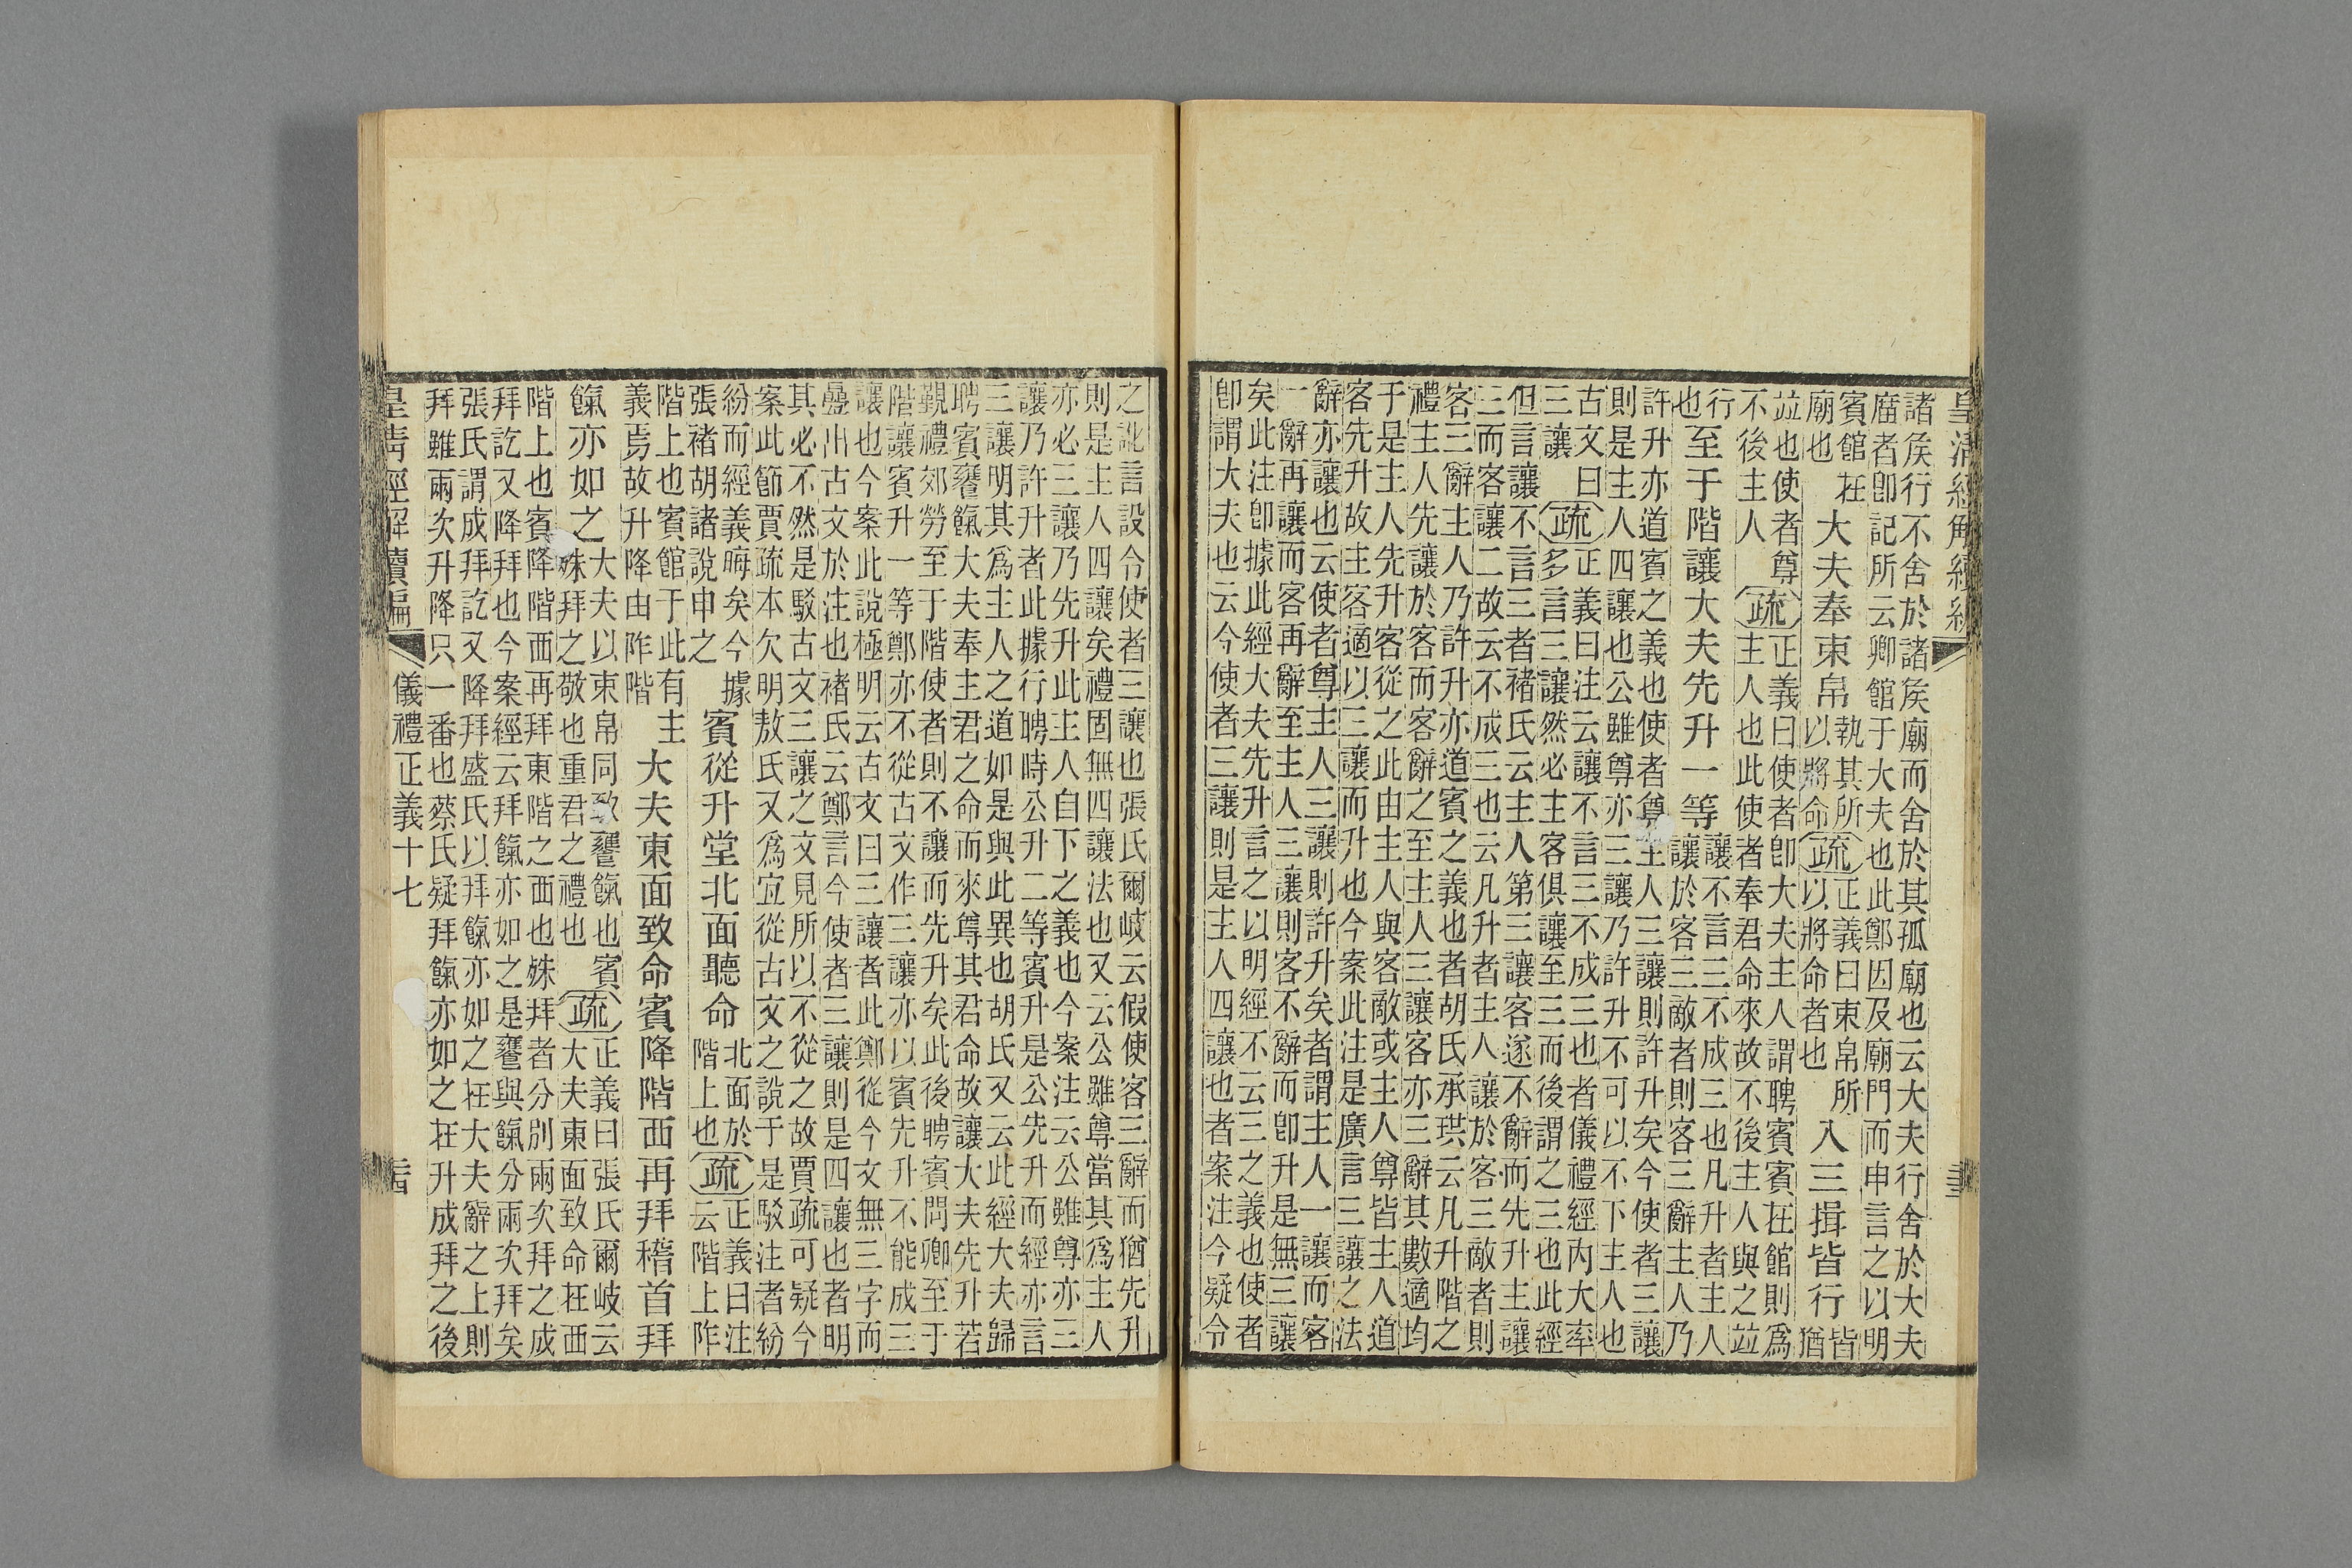 皇清經解續編
諸矦行不舍於諸矦廟而舍於其孤廟也云大夫行舍於大夫
廟者卽記所云卿館于大夫也此鄭因及廟門而申言之以明
賓館在
廟也
大夫奉束帛
執其所
以將命
疏
正義曰束帛所
以將命者也
入三揖皆行
皆
猶
竝也使者尊
不後主人
疏
正義曰使者卽大夫主人謂聘賓賓在館則爲
主人也此使者奉君命來故不後主人與之竝
行
也
至于階讓大夫先升一等
讓不言三不成三也凡升者主人
讓於客三敵者則客三辭主人乃
許升亦道賓之義也使者尊主人三讓則許升矣今使者三讓
則是主人四讓也公雖尊亦三讓乃許升不可以不下主人也
古文曰
三讓
疏
正義曰注云讓不言三不成三也者儀禮經內大率
多言三讓然必主客俱讓至三而後謂之三也此經
但言讓不言三者褚氏云主人第三讓客遂不辭而先升主讓
三而客讓二故云不成三也云凡升者主人讓於客三敵者則
客三辭主人乃許升亦道賓之義也者胡氏承珙云凡升階之
禮主人先讓於客而客辭之至主人三讓客亦三辭其數適均
于是主人先升客從之此由主人與客敵或主人尊皆主人道
客先升故主客適以三讓而升也今案此注是廣言三讓之法
辭亦讓也云使者尊主人三讓則許升矣者謂主人一讓而客
一辭再讓而客再辭至主人三讓則客不辭而卽升是無三讓
矣此注卽據此經大夫先升言之以明經不云三之義也使者
卽謂大夫也云今使者三讓則是主人四讓也者案注今疑令
之訛言設令使者三讓也張氏爾岐云假使客三辭而猶先升
則是主人四讓矣禮固無四讓法也又云公雖尊當其爲主人
亦必三讓乃先升此主人自下之義也今案注云公雖尊亦三
讓乃許升者此據行聘時公升二等賓升是公先升而經亦言
三讓明其爲主人之道如是與此異也胡氏又云此經大夫歸
聘賓饔餼大夫奉主君之命而來尊其君命故讓大夫先升若
覲禮郊勞至于階使者則不讓而先升矣此後聘賓問卿至于
階讓賓升一等鄭亦不從古文作三讓亦以賓先升不能成三
讓也今案此說極明云古文曰三讓者此鄭從今文無三字而
疊出古文於注也褚氏云鄭言今使者三讓則是四讓也者明
其必不然是駁古文三讓之文見所以不從之故賈疏可疑今
案此節賈疏本欠明敖氏又爲宜從古文之說于是駁注者紛
紛而經義晦矣今據
張褚胡諸說申之
賓從升堂北面聽命
北面於
階上也
疏
正義曰注
云階上阼
階上也賓館于此有主
義焉故升降由阼階
大夫東面致命賓降階西再拜稽首拜
餼亦如之
大夫以束帛同致饔餼也賓
殊拜之敬也重君之禮也
疏
正義曰張氏爾岐云
大夫東面致命在西
階上也賓降階西再拜東階之西也殊拜者分別兩次拜之成
拜訖又降拜也今案經云拜餼亦如之是饔與餼分兩次拜矣
張氏謂成拜訖又降拜盛氏以拜餼亦如之在大夫辭之上則
拜雖兩次升降只一番也蔡氏疑拜餼亦如之在升成拜之後
皇清經解續編
儀禮正義十七